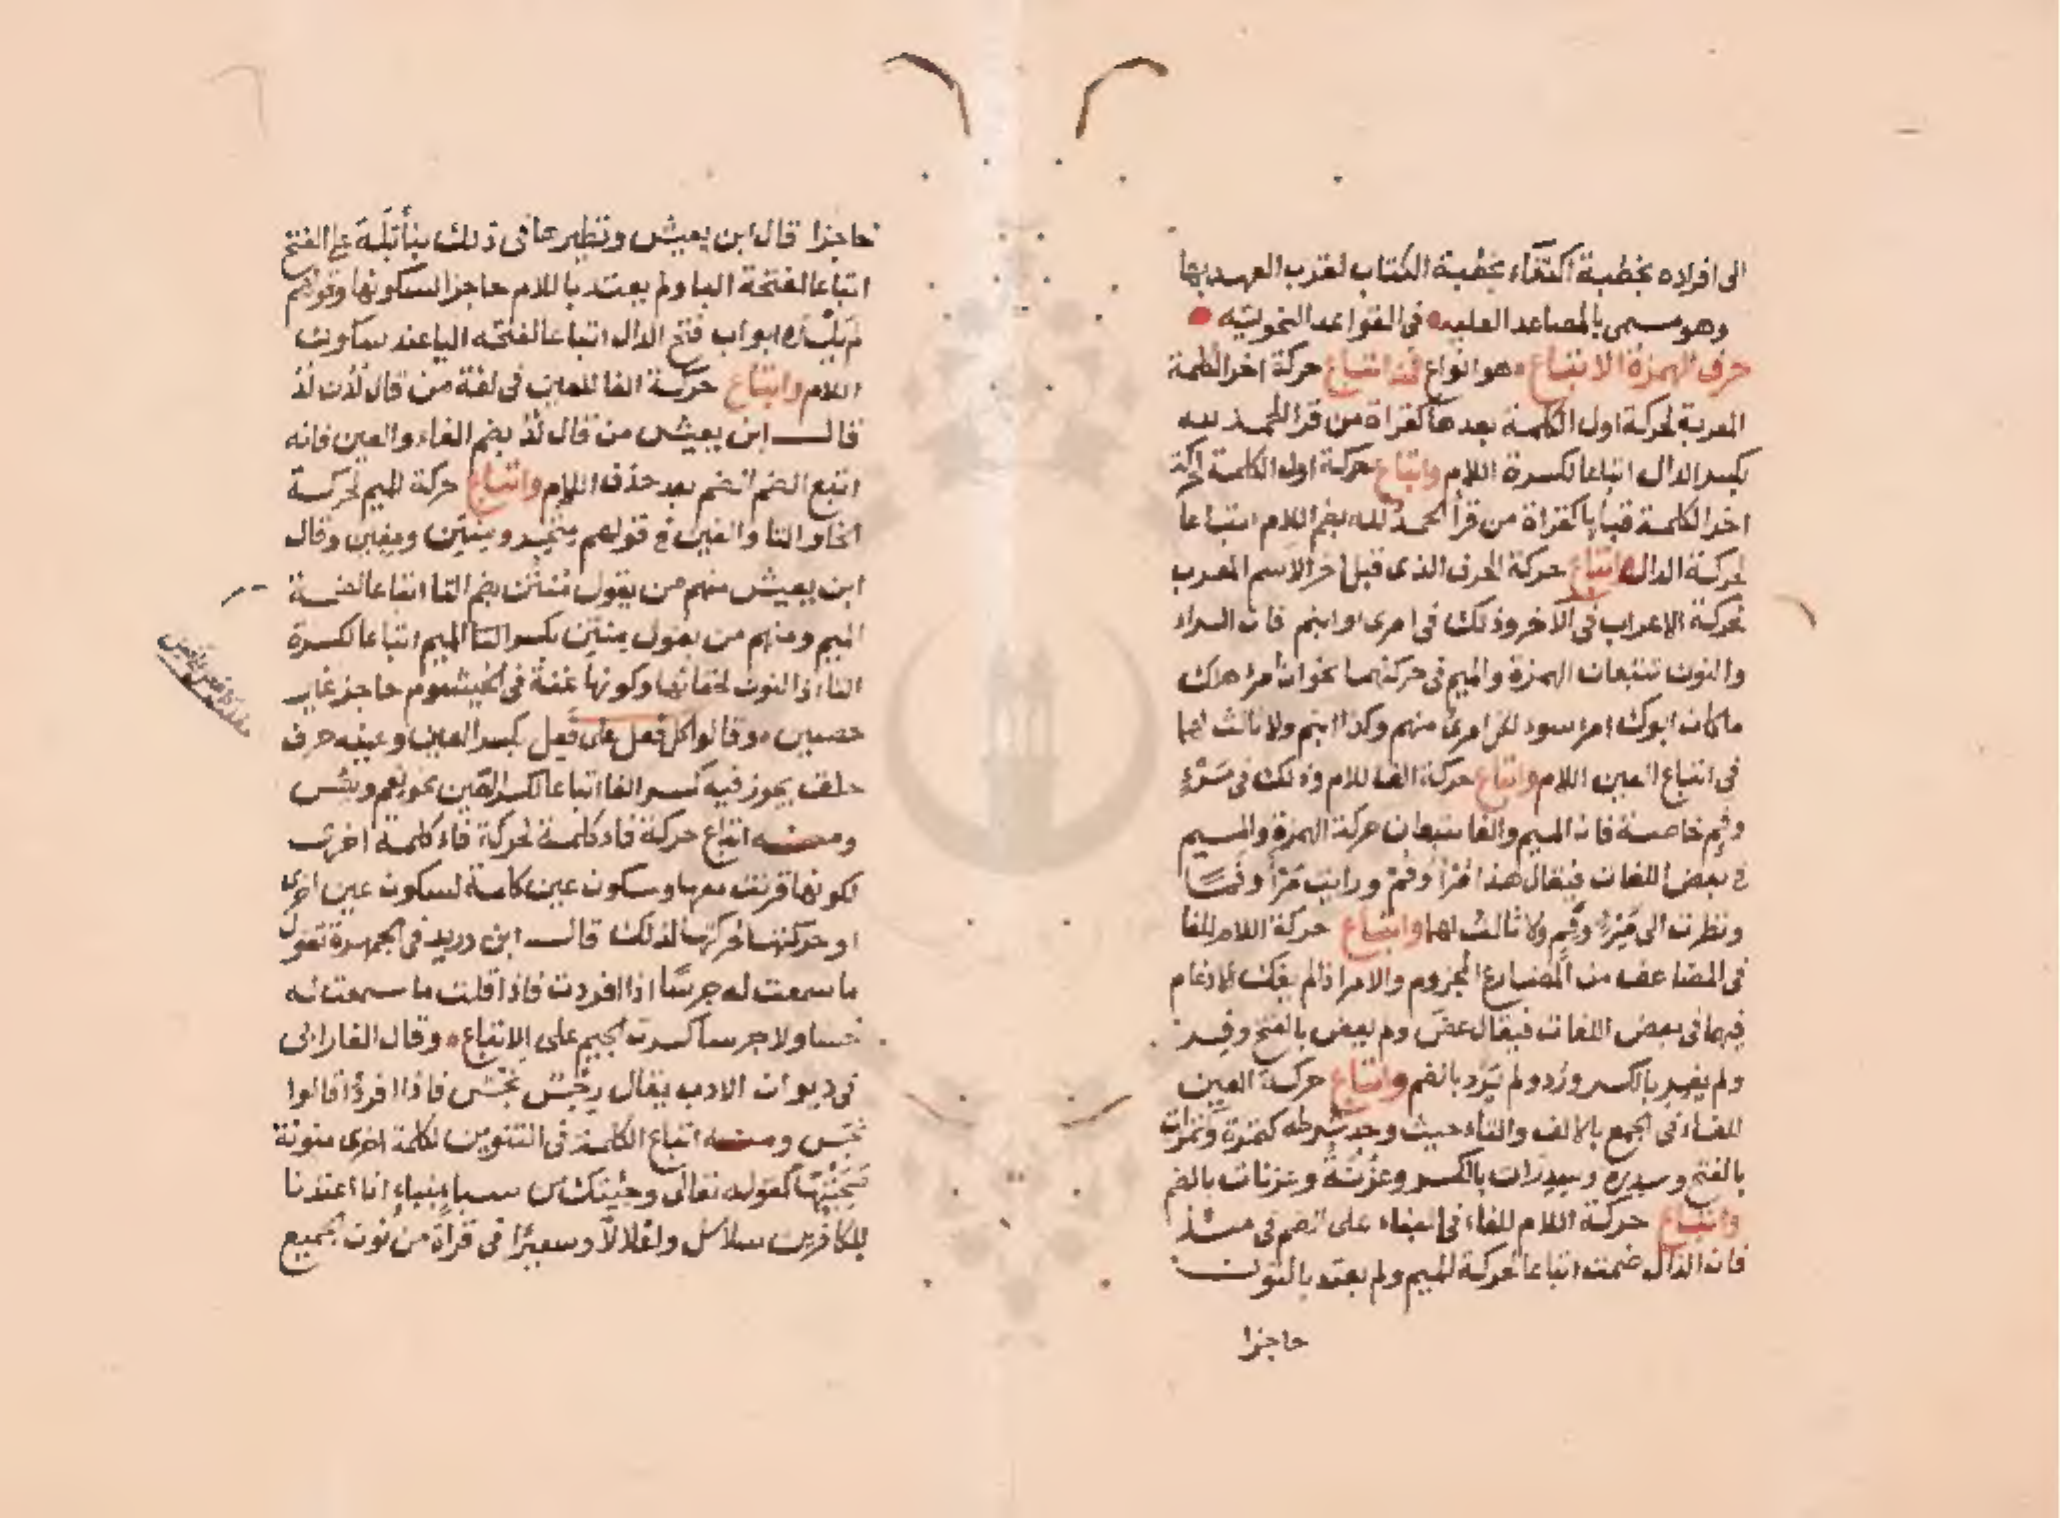 الى افراده بخطبة اكتفاء بخطبة الكتاب لقرب العهد بها
وهو مسمى بالمصاعد العلية في القواعد النحوية
حرف الهمزة الاتباع هو انواع فمنه اتباع حركة اخر الكلمة
المعربة لحركة اول الكلمة بعدها كقراة من قرا الحمد لله
بكسر الدال اتباعا لكسرة اللام واتباع حركة اول الكلمة لحركة
اخر الكلمة قبلها كقراة من قرأ الحمدُ لله بضم اللام اتباعا
لحركة الدال واتباع حركة الحرف الذى قبل اخر الاسم المعرب
لحركة الاعراب في الآخر وذلك في امرئ وابنم فان الراء
والنون تتبعان الهمزة والميم في حركتهما نحو ان امرؤ هلك
ما كان ابوك امرا سوء لكل امرئ منهم وكذا ابنم ولا ثالث لهما
في اتباع العين اللام واتباع حركة الفا للام وذلك في مَرْءٍ
وفم خاصة فان الميم والفا يتبعان حركة الهمزة والميم
في بعض اللغات فيقال هذا مُرْأ وفُمٌ ورايت مَرْأ وفَمًا
ونظرت الى مِرْءٍ وفِمٍ ولا ثالث لهما واتباع حركة اللام للفا
في المضاعف من المضارع المجزوم والامر اذا لم يفك الادغام
فيهما في بعض اللغات فيقال عضَّ ولم يعض بالفتح وفر
ولم يفر بالكسر ورُد ولم يَرُد بالضم واتباع حركة العين
للفاء في الجمع بالالف والتاء حيث وجد شرطه كتمرة وتمرات
بالفتح وسدرة وسدرات بالكسر وغُرْفة وغرفات بالضم
واتباع حركة اللام للفاء في البناء على الضم في منذ
فان الذال ضمت اتباعا لحركة الميم ولم يعتد بالنون
حاجزا
حاجزا قال ابن يعيش ونظيرها في ذلك بناء بَلْهَ على الفتح
اتباعا لفتحة البا ولم يعتد باللام حاجزا لسكونها وقولهم
لم يَلْدَه ابوان فتح الدال اتباعا لفتحة اليا عند سكون
اللام واتباع حركة الفا للعين في لغة من قال لَدُن لُدُ
قال ابن يعيش من قال لُدُ بضم الفاء والعين فانه
اتبع الضم الضم بعد حذف اللام واتباع حركة الميم لحركة
الخا والتا والغين في قولهم مِنخِر ومِنتِن ومِغِين وقال
ابن يعيش منهم من يقول مُنتُن بضم التا اتباعا لضمة
الميم ومنهم من يقول مِنتِن بكسر الميم اتباعا لكسرة
التا اذا النون لخفائها وكونها غنة في الخيشوم حاجز غير
حصين وقالوا كل فعل على فَعِل بكسر العين وعينه حرف
حلق يجوز فيه كسر الفا اتباعا لكسر العين نحو نِعِم وبئس
ومنه اتباع حركة فاء كلمة لحركة فاء كلمة اخرى
لكونها قرنت معها وسكون عين كلمة لسكون عين اخرى
او حركتها لحركتها لذلك قال ابن دريد في الجمهرة تقول
ما سمعت له جرسًا اذا افردت فاذا قلت ما سمعت له
حسا ولا جرسا كسرت الجيم على الاتباع وقال الفارابى
في ديوان الادب يقال رِجْسٌ نِجْسٌ فاذا افردوا قالوا
نَجَس ومنه اتباع الكلمة في التنوين لكلمة اخرى منونة
صحبتها كقوله تعالى وجئتك من سبأٍ بنبأٍ انا اعتدنا
للكافرين سلاسلاً واغلالاً وسعيرًا في قراة من نون الجميع